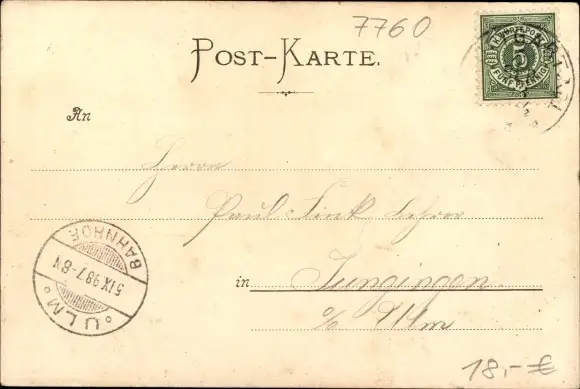 7760
POST-KARTE.
K.W. WÜRTT. POST
5
FÜNF PFENNIG
An
Herrn
Paul Fink Lehrer
in Jungingen
o/c Ulm
BAHNHOF
5 IX 98 7-8 N
ULM
18,- €